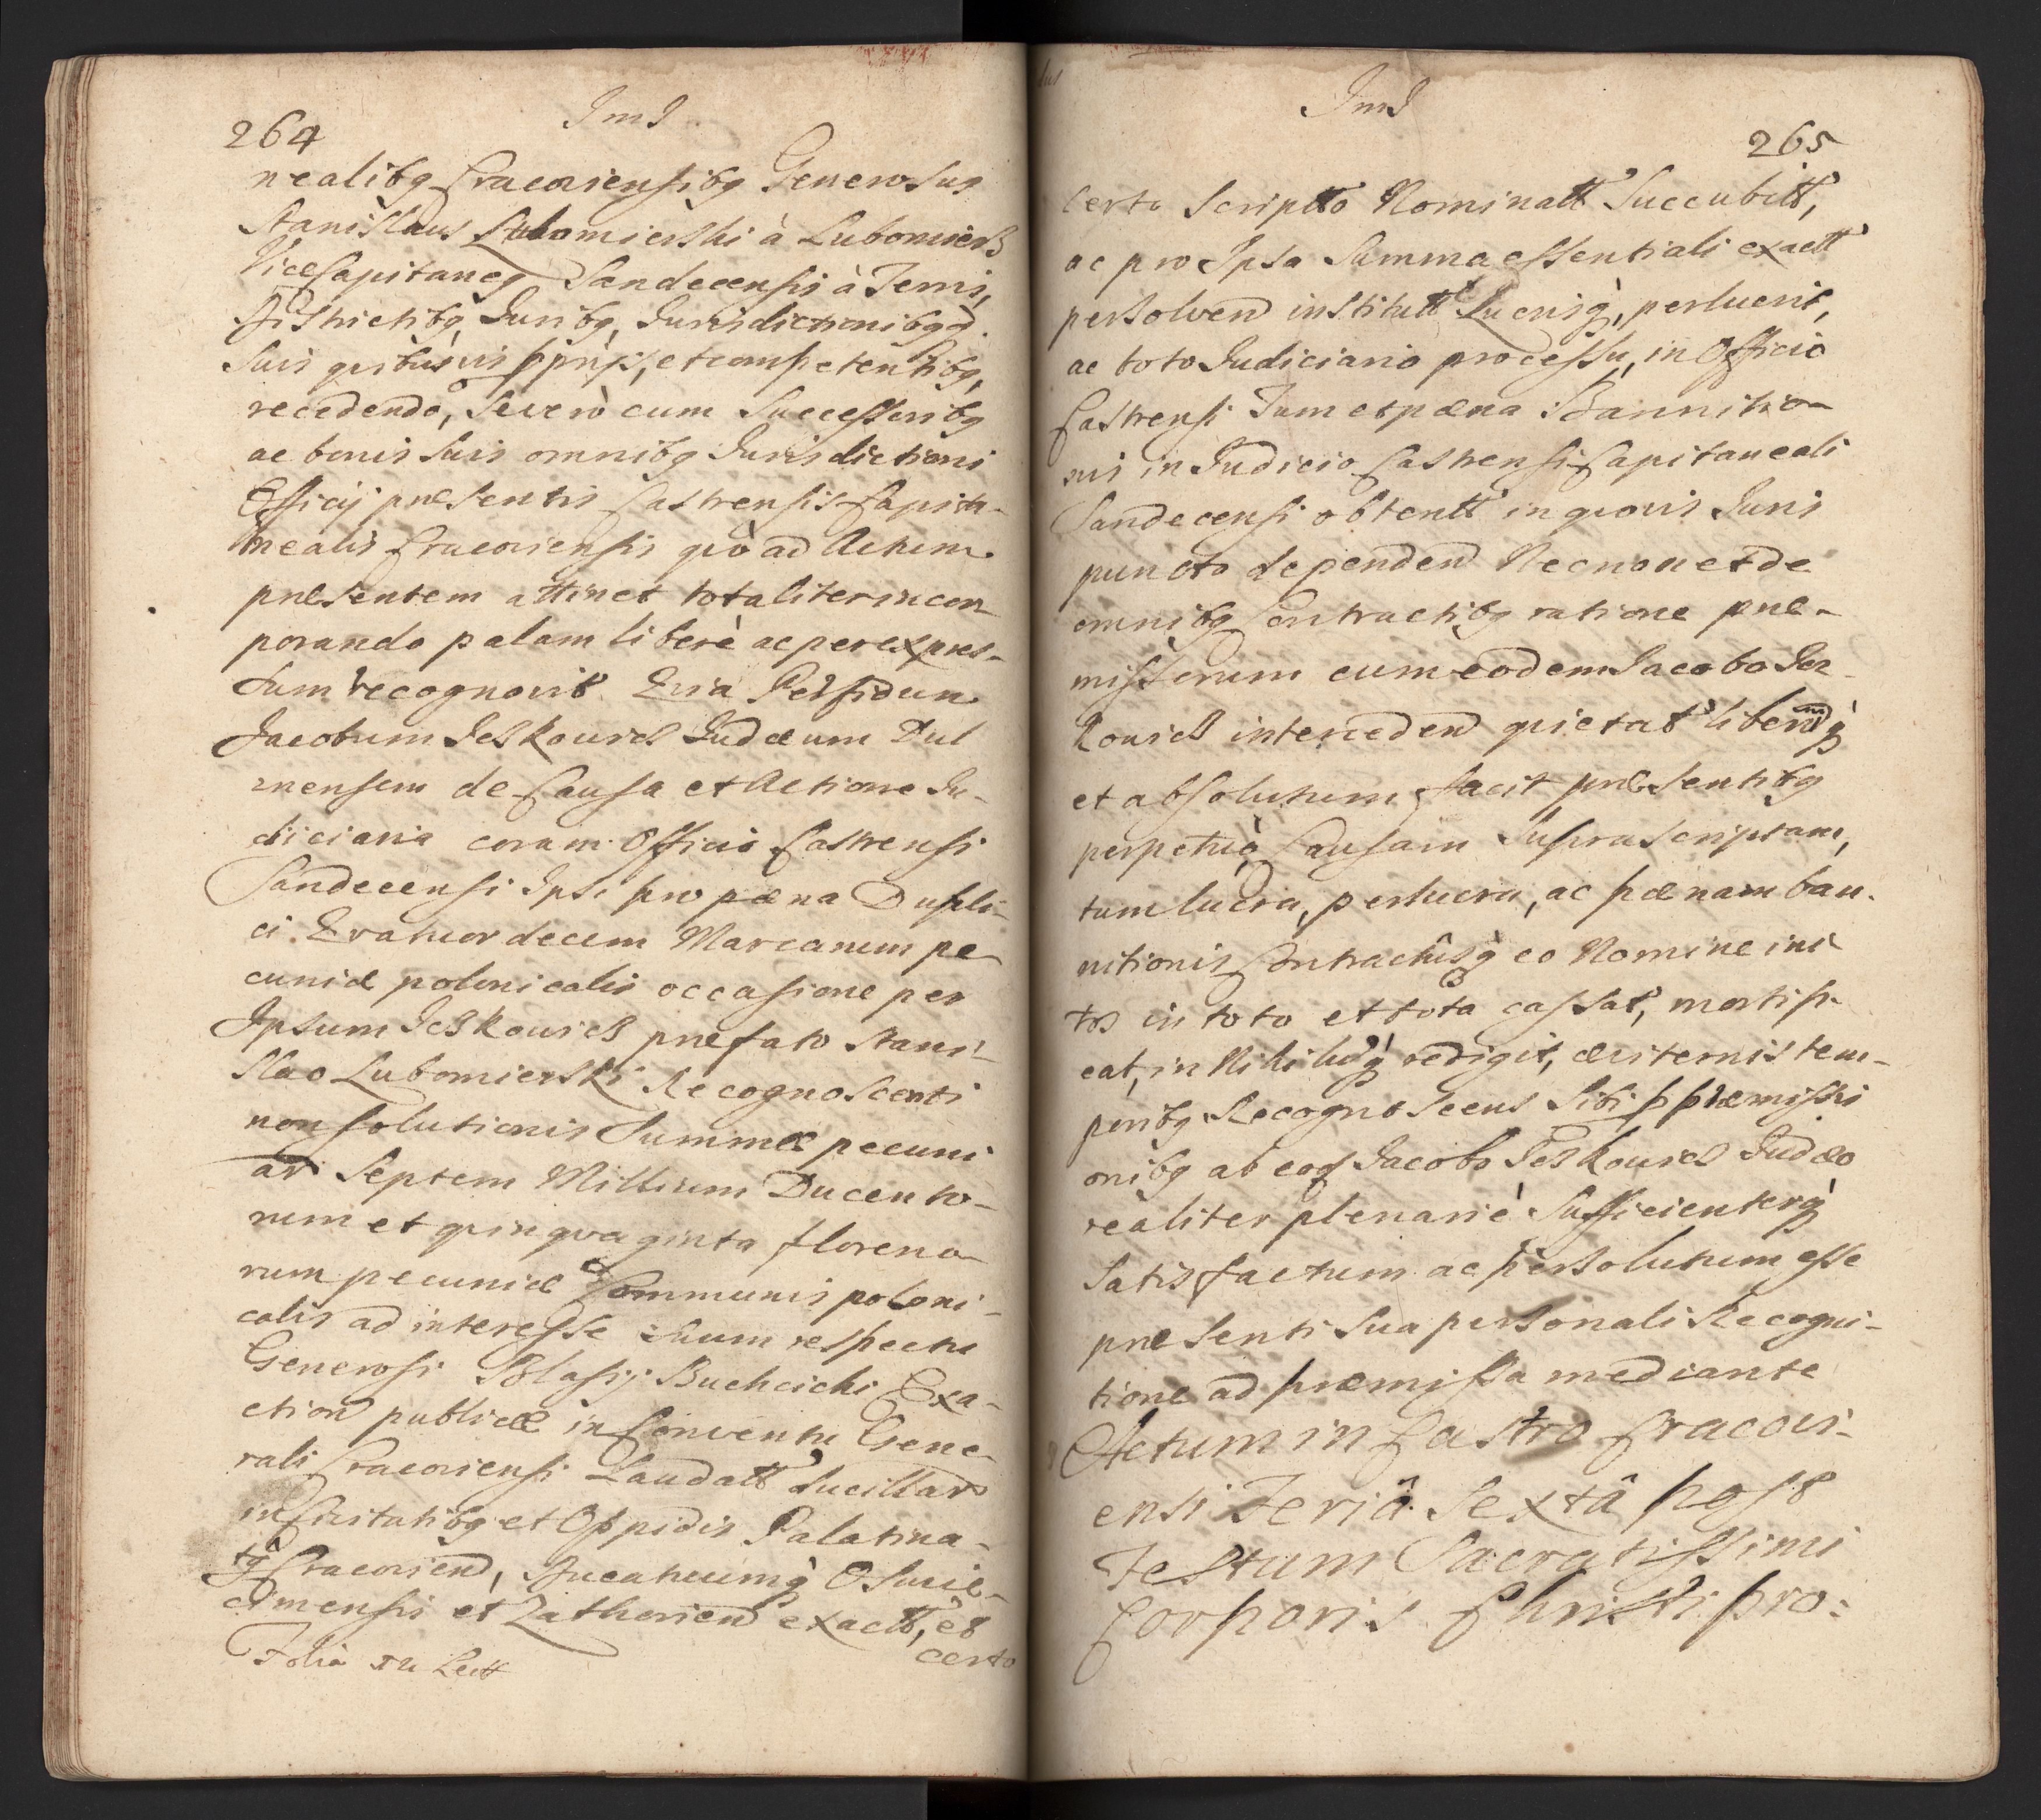 264
nealibq Cracoviensibq Generosus
Stanislaus Lubomierski à Lubomierz
ViceCapitaneq Sandecensis à Terris,
Districtibq Juribq, Jurisdictionibqq̀
suis quibusvis ppriis, et competentibq,
recedendo, se verò cum Successoribq
ac bonis suis omnibq Jurisdictioni
Officij præsentis Castrensis Capita-
nealis Cracoviensis qvò ad Actum
præsentem attinet totaliter incor-
porando palam liberè ac per expres-
sum recognovit. Qvia Perfidum
Jacobum Jeskowicz Judæum Dul
mensem de Causa et Actione Ju-
diciaria coram Officio Castrensi
Sandecensi Ipsi pro pæna Dupli-
ci Qvatuordecim Marcarum pe
cuniæ polonicalis occasione per
Ipsum Jeskowicz præfato Stani-
slao Lubomierski Recognoscenti
non solutionis Summæ pecuni
ar Septem Millium Ducento-
rum et qvinqvaginta floreno-
rum pecuniæ Communis poloni-
calis ad interesse suum respectu
Generosi Blasij Buchcicki Exa-
ction publicæ in Conventu Gene-
rali Cracoviensi Laudatt Sucillar
in Civitatibq et Oppidis Palatina-
tq̀ Cracovien, Ducatuumq̀ Oswie-
cimensis et Zathorien exactt, et
certo
265
certo Scriptto Nominatt Succubitt,
ac pro Ipsa Summa essentiali exactt
persolven institutt Lucrisq̀, perlucris,
ac toto Judiciario processu, in Officio
Castrensi Tum et pæna Bannitio-
nis in Judicio Castrensi Capitaneali
Sandecensi obtentt in qvovis Juris
puncto dependen Necnon et de
omnibq Contractibq ratione præ-
missorum cum eodem Jacobo Jes-
kowicz interceden quietat liberumq̀
et absolutum facit præsentibq
perpetuò, Causam Suprascriptam,
tum lucra, perlucra, ac pænam ban-
nitionis Contractûsq̀ eo Nomine ini
tos in toto et tota cassat, mortifi-
cat, in Nihilumq̀ redigit, æviternis tem-
poribq Recognoscens Sibi p præmissis
onibq ab eod Jacobo Jeskowicz Judæo
realiter plenariè Sufficienterq̀
Satisfactum ac persolutum esse
præsenti sua personali Recogni-
tione ad præmissa mediante
Actum in Castro Cracovi-
ensi Feriâ Sextâ post
Festum Sacratissimi
Corporis Christi pro: